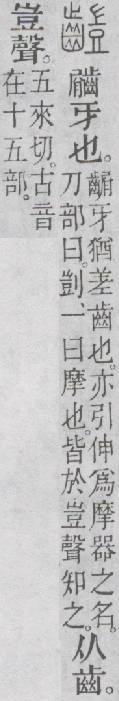 牙也。
牙猶差齒也。亦引伸爲摩器之名。
刀部曰。剴、一曰摩也。皆於豈聲知之。
从齒。
豈聲。
五來切。古音
在十五部。